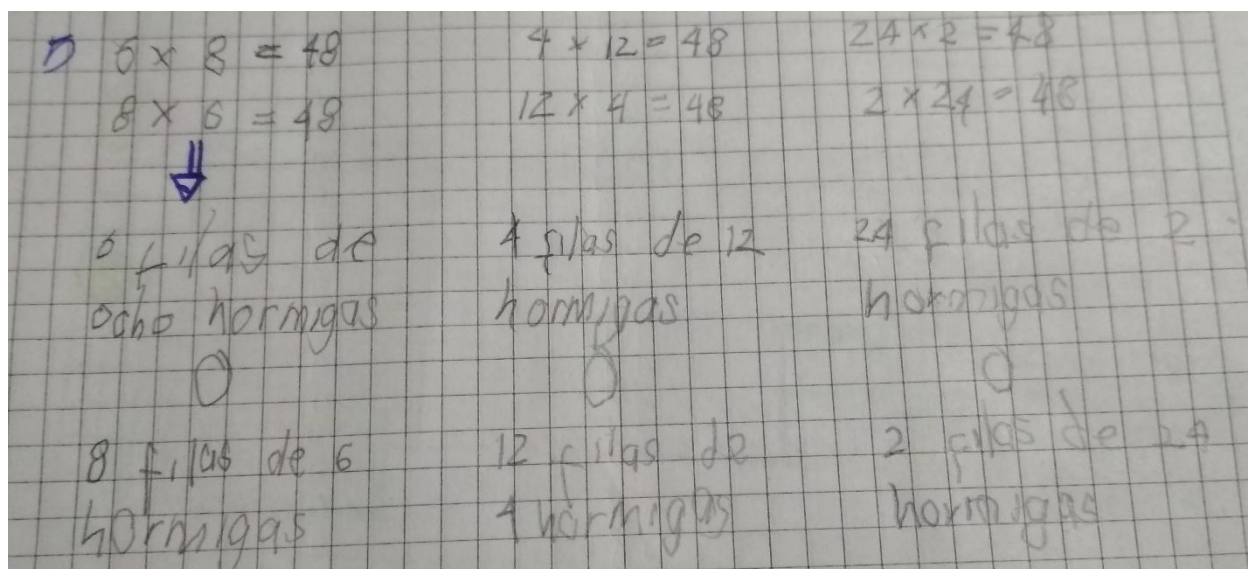 6 x 8 = 48
8 x 6 = 48
6 filas de
ocho hormigas
O
8 filas de 6
hormigas
4 x 12 = 48
12 x 4 = 48
4 filas de 12
hormigas
O
12 filas de
4 hormigas
24 x 2 = 48
2 x 24 = 48
24 filas de 2
hormigas
O
2 filas de 24
hormigas